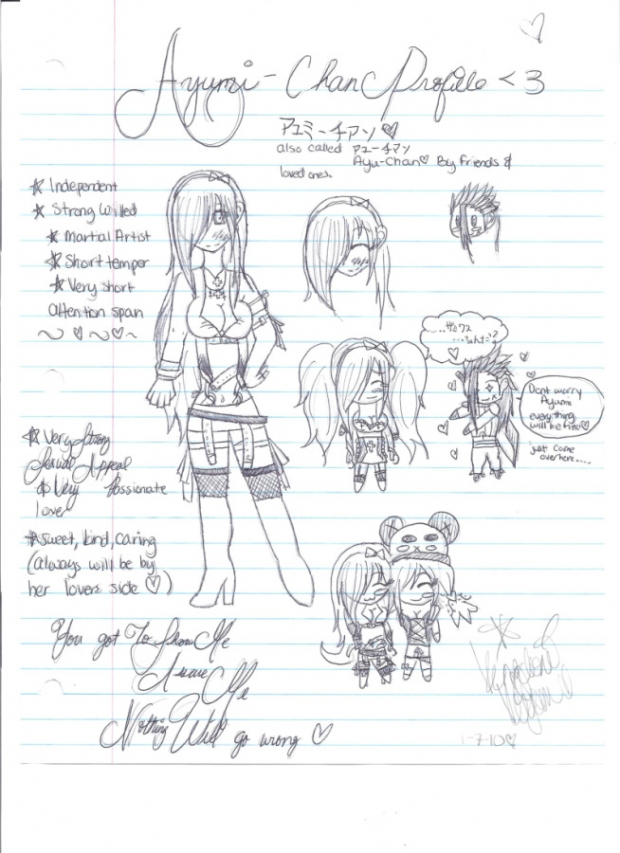 Ayumi-Chan Profile <3
アユミーチアン♡
also called アユーチアン
Ayu-Chan♡ By friends &
loved ones.
* Independent
* Strong Willed
* Martial Artist
* Short temper
* Very short
attention span
~♡~♡~
* Very Strong
Sexual Appeal
& Very Passionate
lover
* sweet, kind, caring
(always will be by
her lovers side ♡)
Dont worry
Ayumi
everything
will be fine♡
just come
over here....
You got To Show Me
Nothing Will go wrong ♡
1-7-10♡